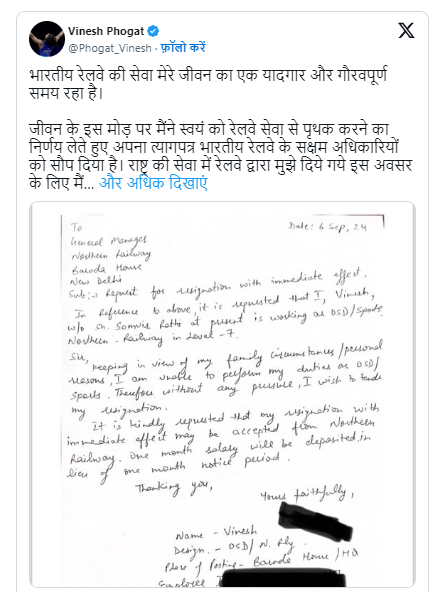 Vinesh Phogat
X
@Phogat_Vinesh · फ़ॉलो करें
भारतीय रेलवे की सेवा मेरे जीवन का एक यादगार और गौरवपूर्ण
समय रहा है।
जीवन के इस मोड़ पर मैंने स्वयं को रेलवे सेवा से पृथक करने का
निर्णय लेते हुए अपना त्यागपत्र भारतीय रेलवे के सक्षम अधिकारियों
को सौप दिया है। राष्ट्र की सेवा में रेलवे द्वारा मुझे दिये गये इस अवसर
के लिए मैं... और अधिक दिखाएं
To
Date: 6 Sep, 24
General Manager
Northern Railway
Baroda House
New Delhi
Sub:→ Request for resignation with immediate effect.
In Reference to above, it is requested that I, Vinesh,
w/o Sh. Somvir Rathi at present is working as OSD/Sports
Northern - Railway in Level - 7.
Sir,
keeping in view of my family circumstances/personal
reasons, I am unable to perform my duties as OSD/
Sports. Therefore without any pressure, I wish to tender
my resignation.
It is kindly requested that my resignation with
immediate effect may be accepted from Northern
Railway. One month salary will be deposited in
lieu of one month notice period.
Thanking you,
Yours faithfully,
Name - Vinesh
Design. - OSD/ N. Rly.
Place of Posting - Baroda House / HQ
Employee